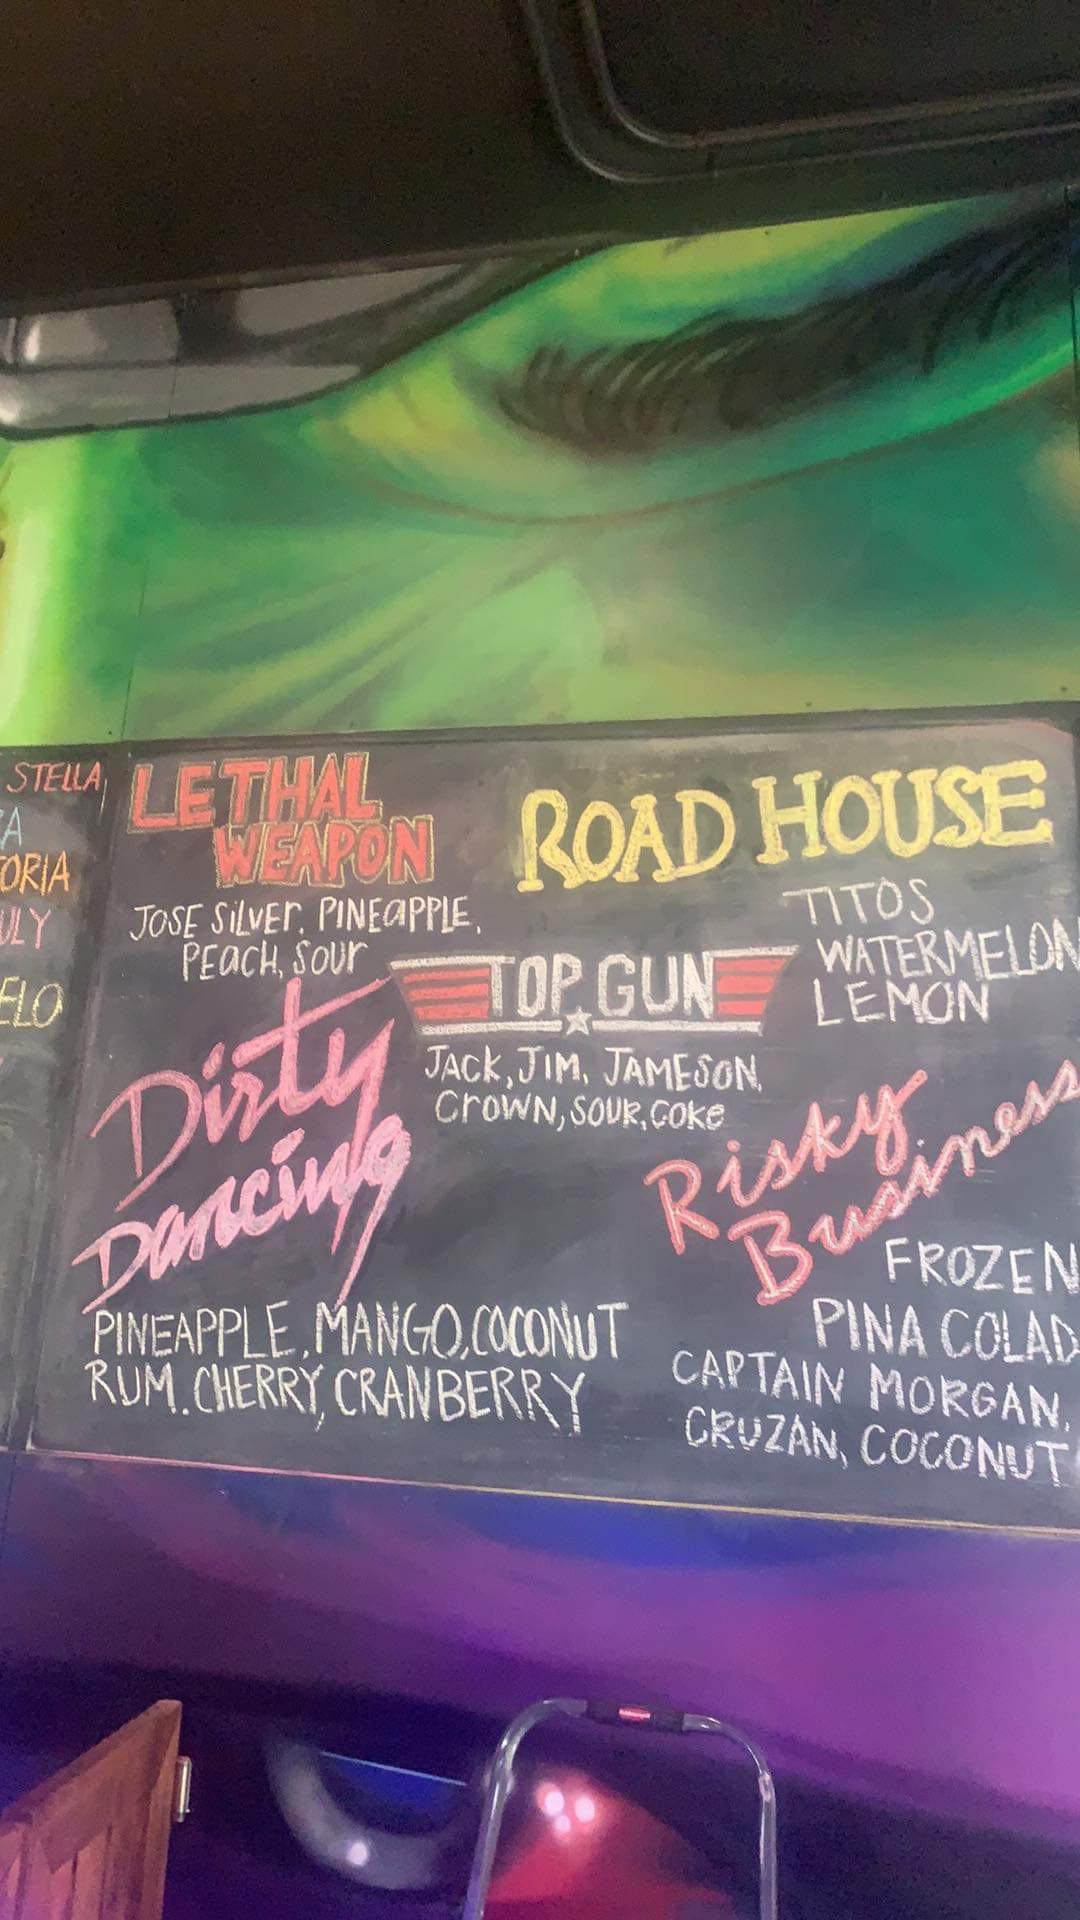 STELLA
LETHAL
WEAPON
JOSE SILVER, PINEAPPLE,
PEACH, SOUR
ROAD HOUSE
TITOS
WATERMELON
LEMON
TOP GUN
JACK, JIM, JAMESON,
CROWN, SOUR, COKE
Dirty
Dancing
PINEAPPLE, MANGO, COCONUT
RUM. CHERRY, CRANBERRY
Risky
Business
FROZEN
PINA COLAD
CAPTAIN MORGAN,
CRUZAN, COCONUT